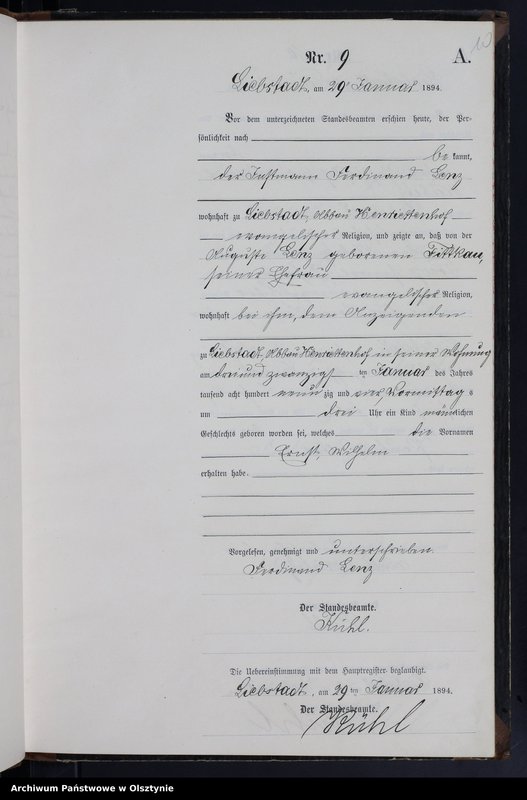 10
Nr. 9 A.
Liebstadt, am 29 Januar 1894.
Vor dem unterzeichneten Standesbeamten erschien heute, der Per-
sönlichkeit nach
be kannt,
der Instmann Ferdinand Lenz
wohnhaft zu Liebstadt, Abbau Henriettenhof
evangelischer Religion, und zeigte an, daß von der
Auguste Lenz geborenen Fittkau,
seiner Ehefrau
evangelischer Religion,
wohnhaft bei ihm, dem Anzeigenden
zu Liebstadt, Abbau Henriettenhof in seiner Wohnung
am dreiundzwanzigs ten Januar des Jahres
tausend acht hundert neun zig und vier, Vormittag s
um drei Uhr ein Kind männlichen
Geschlechts geboren worden sei, welches die Vornamen
Ernst, Wilhelm
erhalten habe.
Vorgelesen, genehmigt und unterschrieben.
Ferdinand Lenz
Der Standesbeamte.
Kühl.
Die Uebereinstimmung mit dem Hauptregister beglaubigt.
Liebstadt, am 29 ten Januar 1894.
Der Standesbeamte.
Kühl
Archiwum Państwowe w Olsztynie